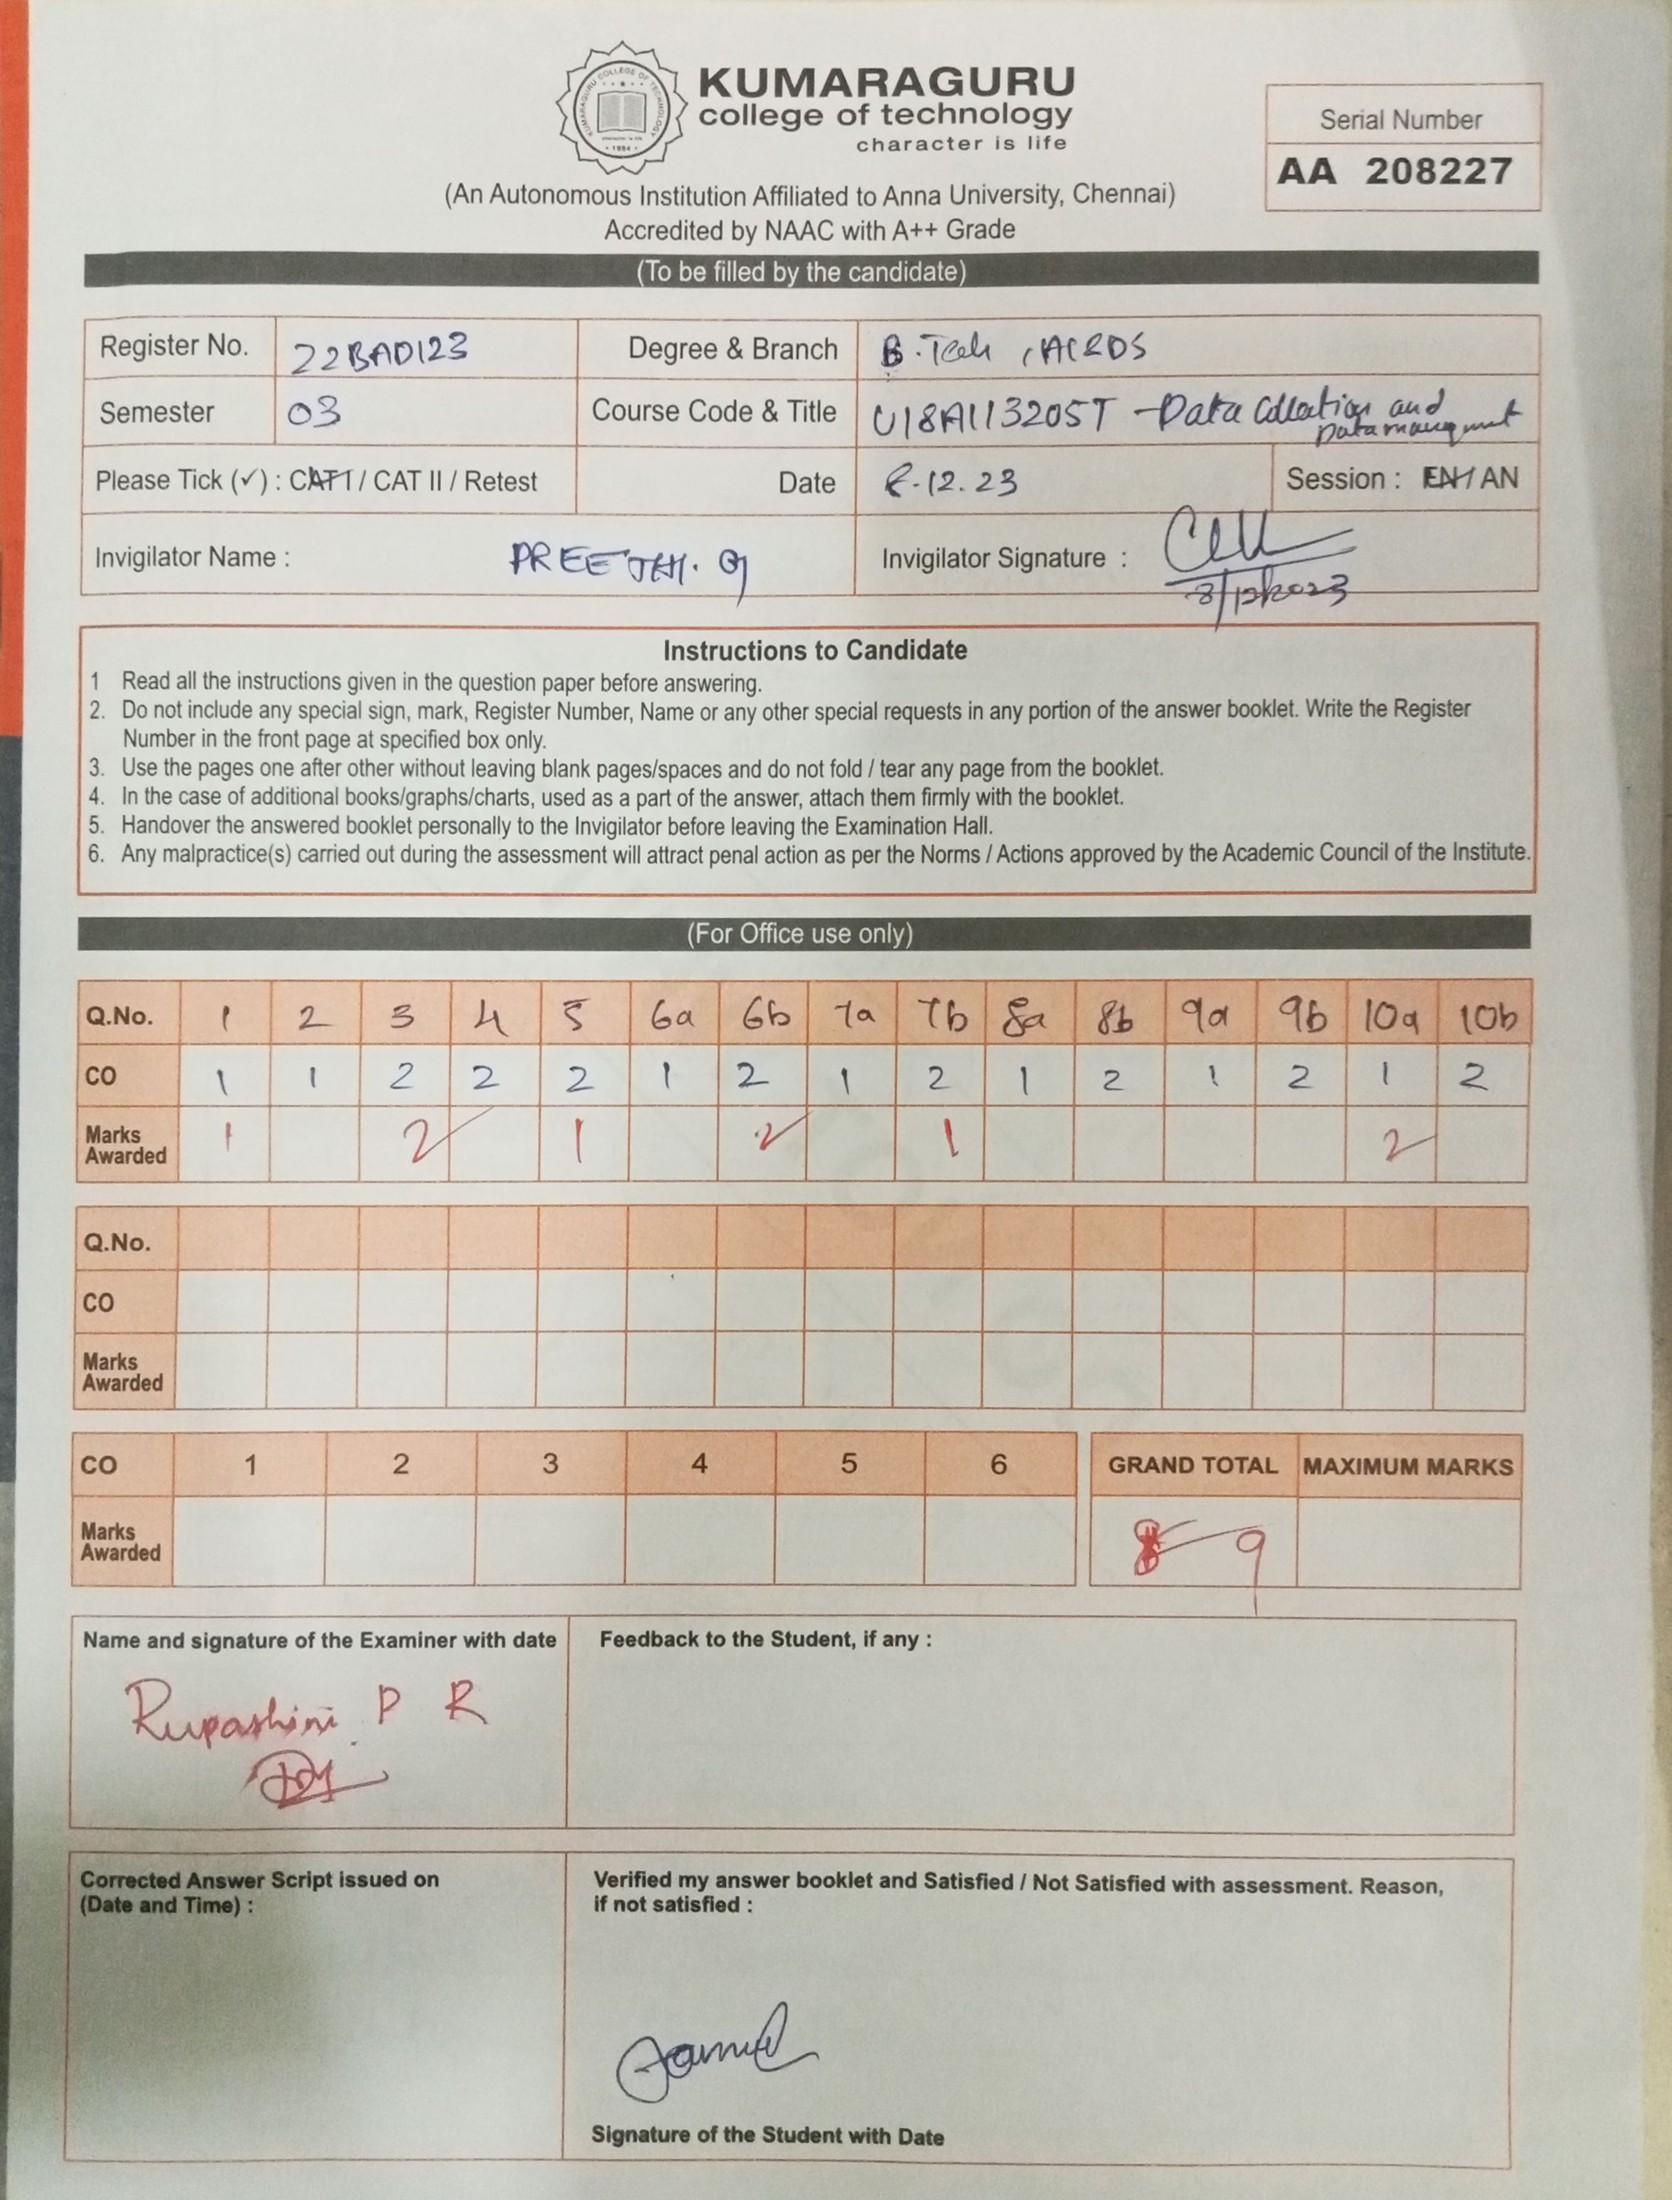 KUMARAGURU COLLEGE OF TECHNOLOGY
character is life
1984
KUMARAGURU
college of technology
character is life
(An Autonomous Institution Affiliated to Anna University, Chennai)
Accredited by NAAC with A++ Grade
Serial Number
AA 208227
(To be filled by the candidate)
Register No. 22BAD123 Degree & Branch B.Tech , AI&DS
Semester 03 Course Code & Title U18AII3205T - Data Collection and
Data
Please Tick (✓) : CAT I / CAT II / Retest Date 8.12.23 Session : FN / AN
Invigilator Name : PREETHI. G Invigilator Signature :
8/12/2023
Instructions to Candidate
1 Read all the instructions given in the question paper before answering.
2. Do not include any special sign, mark, Register Number, Name or any other special requests in any portion of the answer booklet. Write the Register
Number in the front page at specified box only.
3. Use the pages one after other without leaving blank pages/spaces and do not fold / tear any page from the booklet.
4. In the case of additional books/graphs/charts, used as a part of the answer, attach them firmly with the booklet.
5. Handover the answered booklet personally to the Invigilator before leaving the Examination Hall.
6. Any malpractice(s) carried out during the assessment will attract penal action as per the Norms / Actions approved by the Academic Council of the Institute.
(For Office use only)
Q.No. 1 2 3 4 5 6a 6b 7a 7b 8a 8b 9a 9b 10a 10b
CO 1 1 2 2 2 1 2 1 2 1 2 1 2 1 2
Marks Awarded 1 2 1 2 1 2
Q.No.
CO
Marks Awarded
CO 1 2 3 4 5 6 GRAND TOTAL MAXIMUM MARKS
Marks Awarded 8 9
Name and signature of the Examiner with date
Rupashini P R
Feedback to the Student, if any :
Corrected Answer Script issued on
(Date and Time) :
Verified my answer booklet and Satisfied / Not Satisfied with assessment. Reason,
if not satisfied :
Signature of the Student with Date